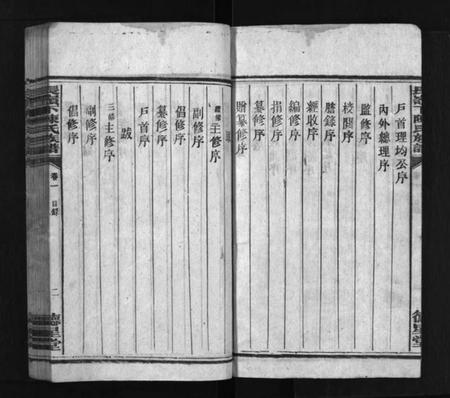 戶首理均公序
內外總理序
監修序
校閱序
謄錄序
經收序
編修序
捐修序
纂修序
贈纂修序
續修主修序
副修序
倡修序
纂修序
戶首序
跋
三修主修序
副修序
倡修序
陳氏族譜
卷一
目錄
二
德星堂